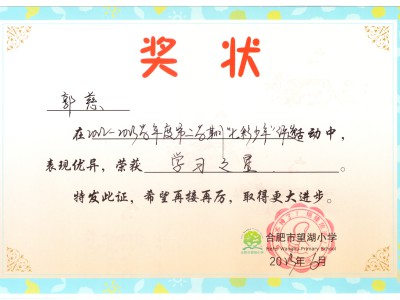 奖状
郭慈
在2012-2013学年度第二学期"七彩少年"评选活动中，
表现优异，荣获 学习之星 。
特发此证，希望再接再厉，取得更大进步。
合肥市望湖小学
Hefei Wanghu Primary School
2013年6月